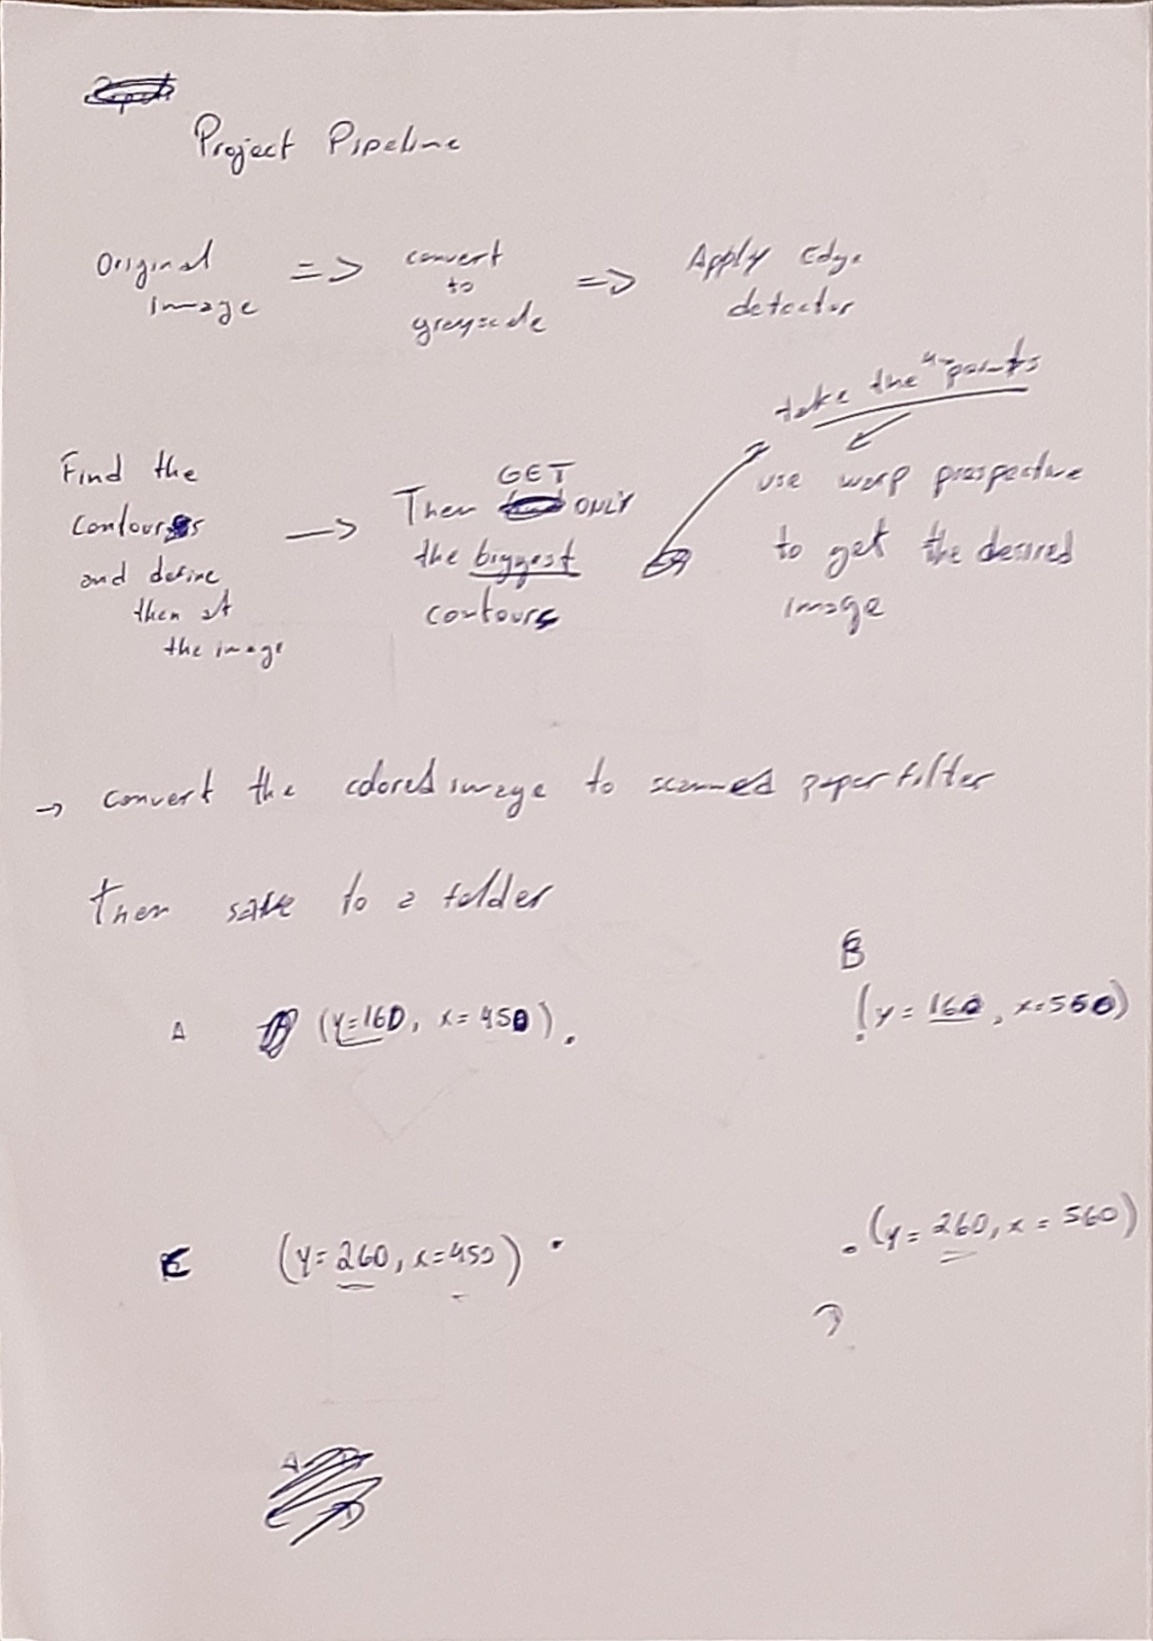 Project Pipeline
Original
image
=>
convert
to
greyscale
=>
Apply Edge
detector
Find the
Contours
and define
then at
the image
→
GET
Then ONLY
the biggest
contours
take the 4 points
use warp prespective
to get the desired
image
→ convert the colored image to scanned paper filter
then save to a folder
A (y=160, x=450).
B
(y=160, x=560)
C (y=260, x=450)
(y=260, x=560)